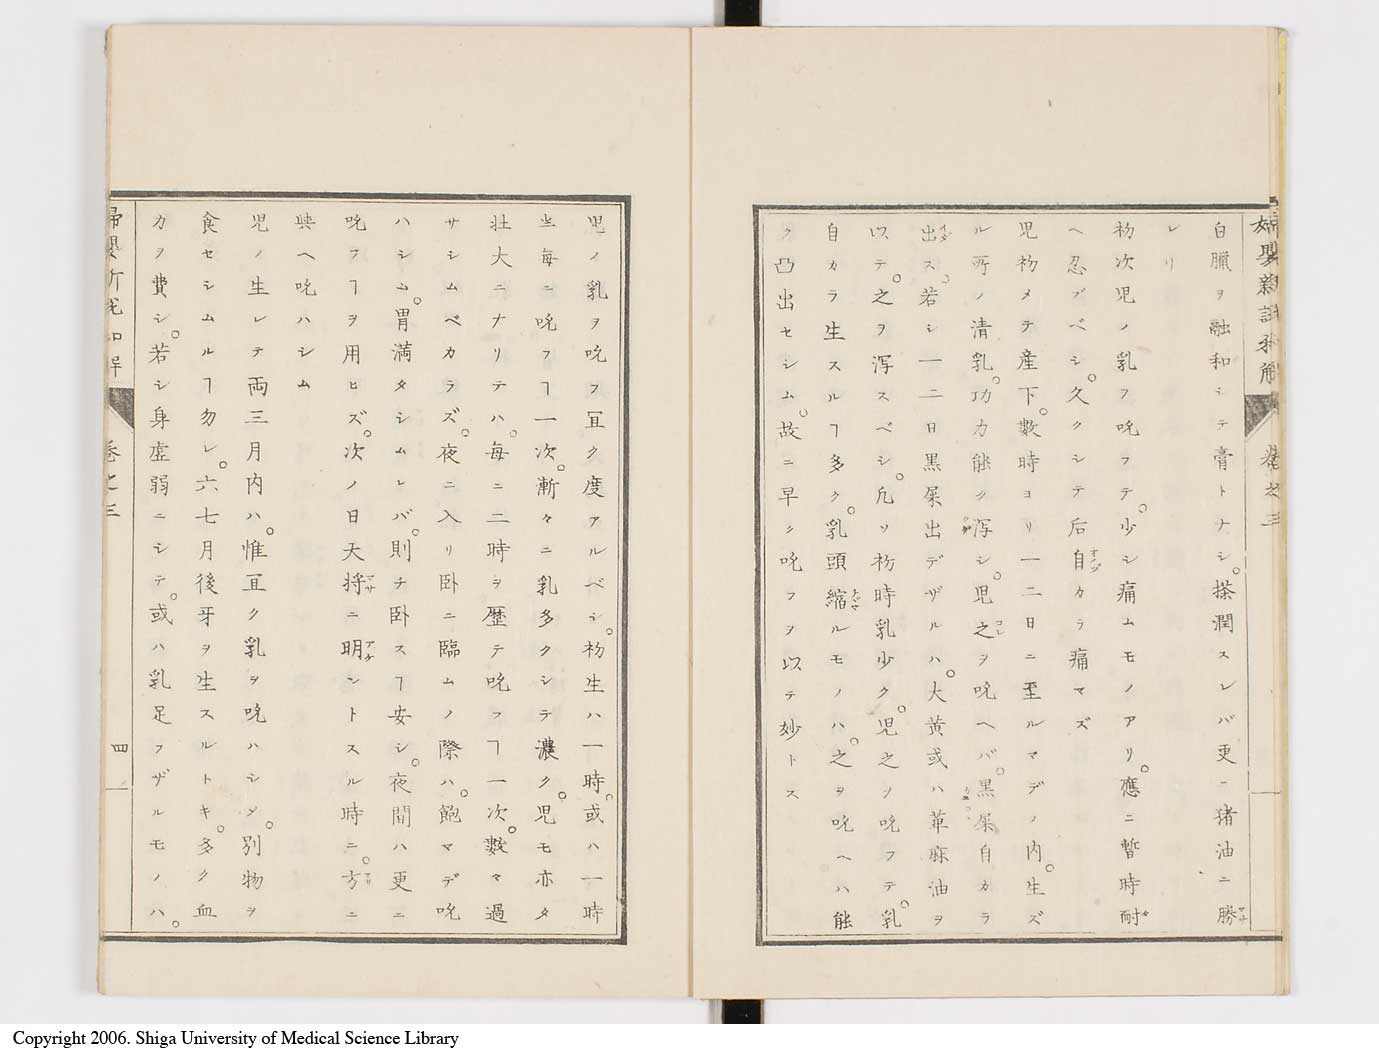 婦嬰新説和解 卷之三
白臘ヲ融和シテ膏トナシ。搽潤スレバ更ニ猪油ニ勝
レリ
初次児ノ乳ヲ吮フテ。少シ痛ムモノアリ。應ニ暫時耐
ヘ忍ブベシ。久クシテ后自カラ痛マズ
児初メテ産下。數時ヨリ一二日ニ至ルマデノ内。生ズ
ル所ノ清乳。功力能ク瀉シ。児之ヲ吮ヘバ。黒屎自カラ
出ス。若シ一二日黒屎出デザルハ。大黄或ハ萆麻油ヲ
以テ。之ヲ瀉スベシ。凡ソ初時乳少ク。児之ヲ吮フテ。乳
自カラ生スルヿ多ク。乳頭縮ルモノハ。之ヲ吮ヘハ能
ク凸出セシム。故ニ早ク吮フヲ以テ妙トス
児ノ乳ヲ吮フ冝ク度アルベシ。初生ハ一時。或ハ一時
半毎ニ吮フヿ一次。漸々ニ乳多クシテ濃ク。児モ亦タ
壮大ニナリテハ。毎ニ二時ヲ歴テ吮フヿ一次。數マ過
サシムベカラズ。夜ニ入リ卧ニ臨ムノ際ハ。飽マデ吮
ハシム。胃満タシムレバ。則チ卧スヿ安シ。夜間ハ更ニ
吮フヿヲ用ヒズ。次ノ日天将ニ明ントスル時ニ。方ニ
與ヘ吮ハシム
児ノ生レテ両三月内ハ。惟冝ク乳ヲ吮ハシメ。別物ヲ
食セシムルヿ勿レ。六七月後牙ヲ生スルトキ。多ク血
力ヲ費シ。若シ身虚弱ニシテ。或ハ乳足ラザルモノハ。
婦嬰新説和解 卷之三 四
Copyright 2006. Shiga University of Medical Science Library